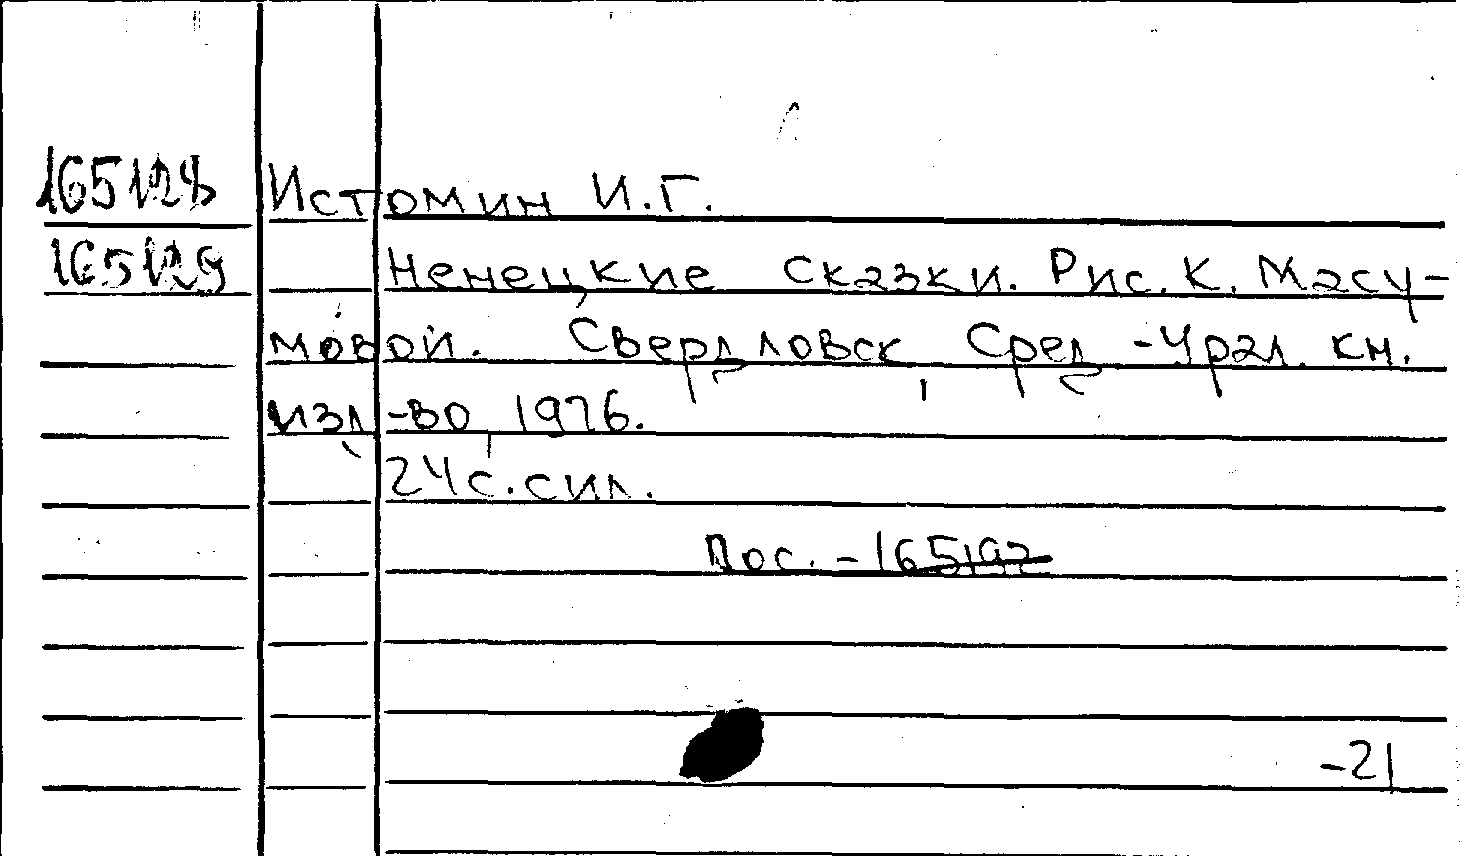 165128 Истомин И.Г.
165129 Ненецкие сказки. Рис. К. Масу-
мовой. Свердловск, Сред.-Урал. кн.
изд-во, 1976.
24с. с ил.
Пос. - 165197
-21